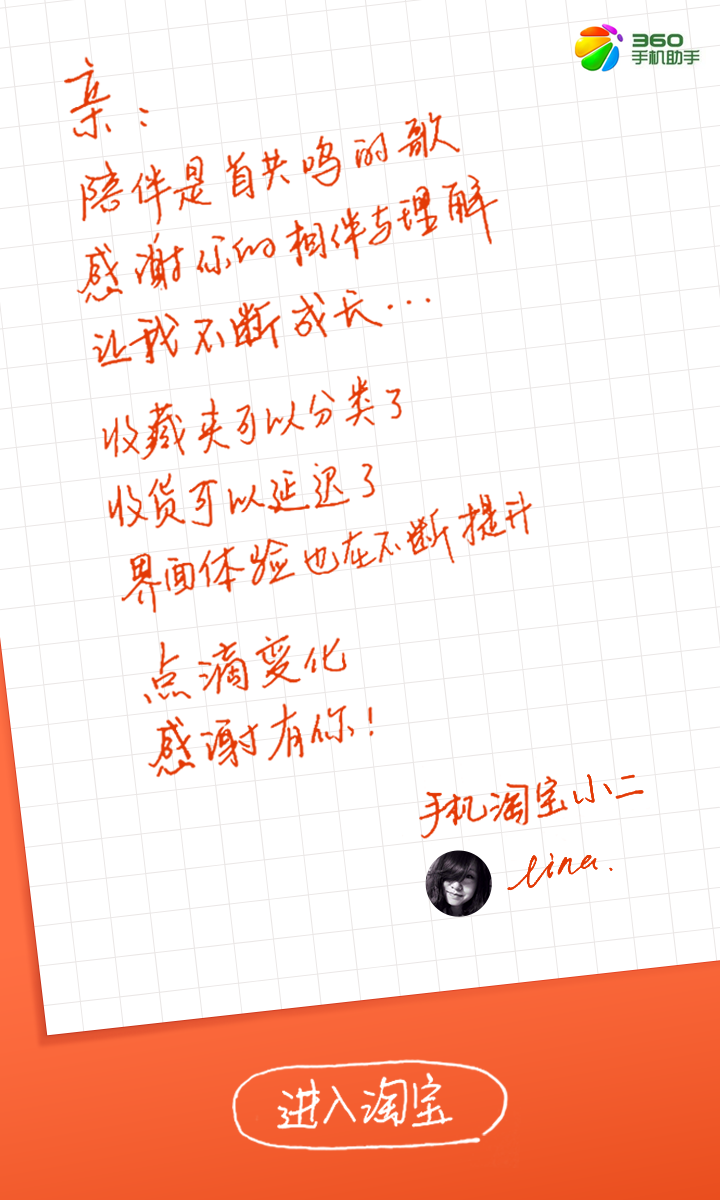 360
手机助手
亲：
陪伴是首共鸣的歌
感谢你的相伴与理解
让我不断成长...
收藏夹可以分类了
收货可以延迟了
界面体验也在不断提升
点滴变化
感谢有你！
手机淘宝小二
lina.
进入淘宝